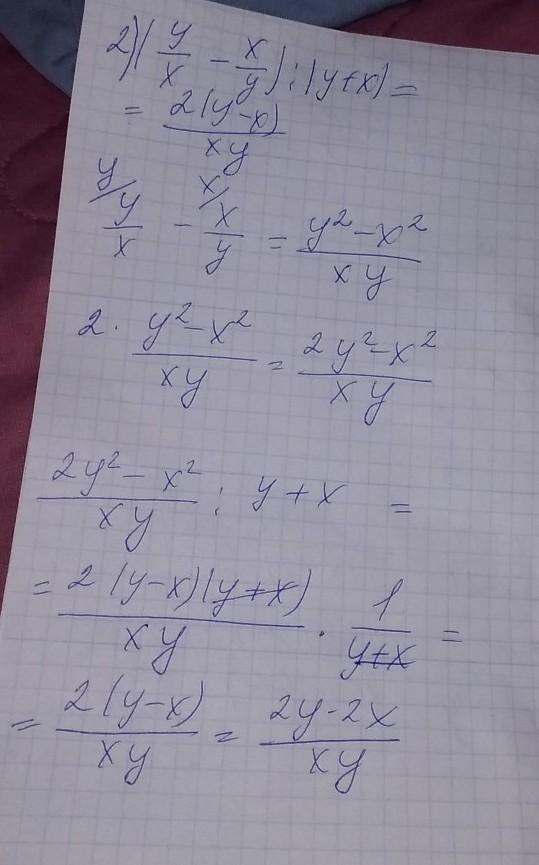 2)(y/x - x/y) : (y+x) =
= 2(y-x)/xy
y/ y/x - x/ x/y = y²-x²/xy
2. y²-x²/xy = 2y²-x²/xy
2y²-x²/xy : y+x =
= 2(y-x)(y+x)/xy · 1/y+x =
= 2(y-x)/xy = 2y-2x/xy